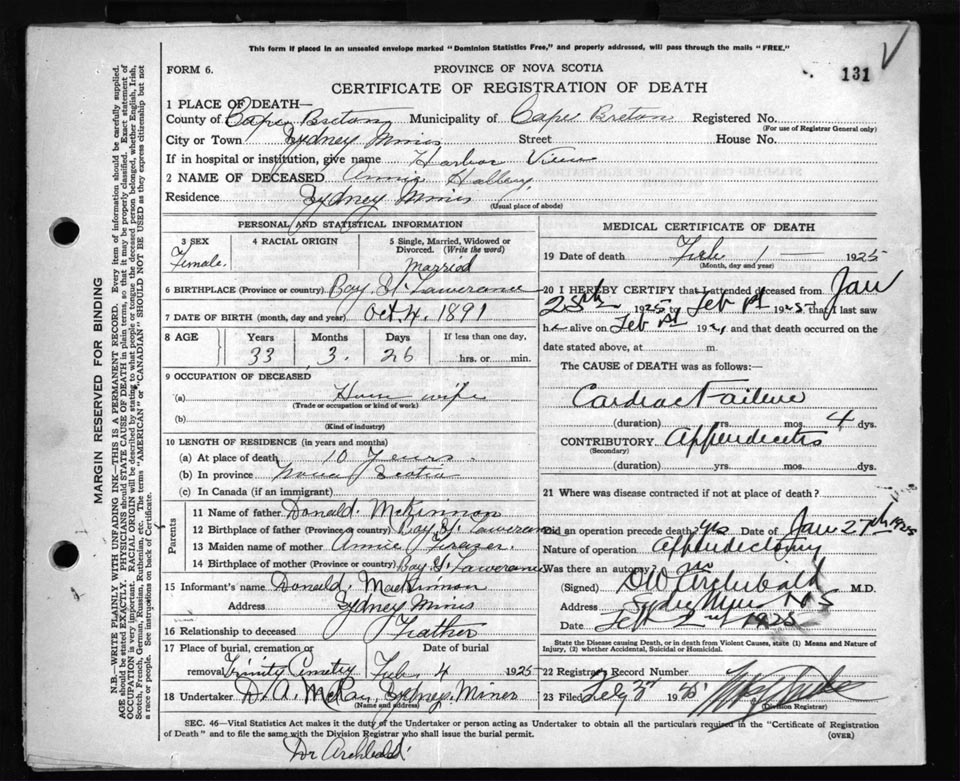 This form if placed in an unsealed envelope marked "Dominion Statistics Free," and properly addressed, will pass through the mails "FREE."
FORM 6.
PROVINCE OF NOVA SCOTIA
131
CERTIFICATE OF REGISTRATION OF DEATH
1 PLACE OF DEATH—
County of Cape Breton Municipality of Cape Breton Registered No.
(For use of Registrar General only)
City or Town Sydney Mines Street House No.
If in hospital or institution, give name Harbor View
2 NAME OF DECEASED Annie
Residence Sydney Mines
(Usual place of abode)
PERSONAL and STATISTICAL INFORMATION
3 SEX
Female.
4 RACIAL ORIGIN
5 Single, Married, Widowed or Divorced. (Write the word)
Married
6 BIRTHPLACE (Province or country) Bay St Lawerance
7 DATE OF BIRTH (month, day and year) Oct. 4. 1891
8 AGE
Years Months Days If less than one day,
33 3. 26 hrs. or min.
9 OCCUPATION OF DECEASED
(a) House wife
(Trade or occupation or kind of work)
(b)
(Kind of industry)
10 LENGTH OF RESIDENCE (in years and months)
(a) At place of death 10 Years.
(b) In province Nova Scotia
(c) In Canada (if an immigrant)
Parents
11 Name of father Donald McKinnon
12 Birthplace of father (Province or country) Bay St Lawerance
13 Maiden name of mother Annie
14 Birthplace of mother (Province or country) Bay St Lawerance
15 Informant's name Donald MacKinnon
Address Sydney Mines
16 Relationship to deceased Father
17 Place of burial, cremation or Date of burial
removal Trinity Cemetry Feb. 4 1925
18 Undertaker D. A. McRay Sydney Mines
(Name and address)
MEDICAL CERTIFICATE OF DEATH
19 Date of death Feb 1 — 1925
(Month, day and year)
20 I HEREBY CERTIFY that I attended deceased from Jan
25th 1925 to Feb 1st 1925 that I last saw
h alive on Feb 1st 192 , and that death occurred on the
date stated above, at m
The CAUSE of DEATH was as follows:—
Cardiac Failure
(duration) yrs. mos. 4 dys.
CONTRIBUTORY Appendicitis
(Secondary)
(duration) yrs. mos. dys.
21 Where was disease contracted if not at place of death?
Did an operation precede death? Yes Date of Jan 27th 1925
Nature of operation Appendectomy
Was there an autopsy? no
(Signed) DW Archibald M.D.
Address Sydney Mines N S
Date Feb 2nd 1925
State the Disease causing Death, or in Death from Violent Causes, state (1) Means and Nature of Injury, (2) whether Accidental, Suicidal or Homicidal.
22 Registrar's Record Number
23 Filed Feby 3rd 1925
(Division Registrar)
SEC. 46—Vital Statistics Act makes it the duty of the Undertaker or person acting as Undertaker to obtain all the particulars required in the "Certificate of Registration
of Death" and to file the same with the Division Registrar who shall issue the burial permit.
(OVER)
Dr Archibald
MARGIN RESERVED FOR BINDING
N.B.—WRITE PLAINLY WITH UNFADING INK—THIS IS A PERMANENT RECORD. Every item of information should be carefully supplied.
AGE should be stated EXACTLY. PHYSICIANS should STATE CAUSE OF DEATH in plain terms, so that it may be properly classified. Exact statement of
OCCUPATION is very important. RACIAL ORIGIN will be described by stating to what people or tongue the deceased person belonged, whether English, Irish,
Scotch, French, German, Russian, Ruthenian, etc. The terms "AMERICAN" or "CANADIAN" SHOULD NOT BE USED as they express citizenship but not
a race or people. See instructions on back of Certificate.